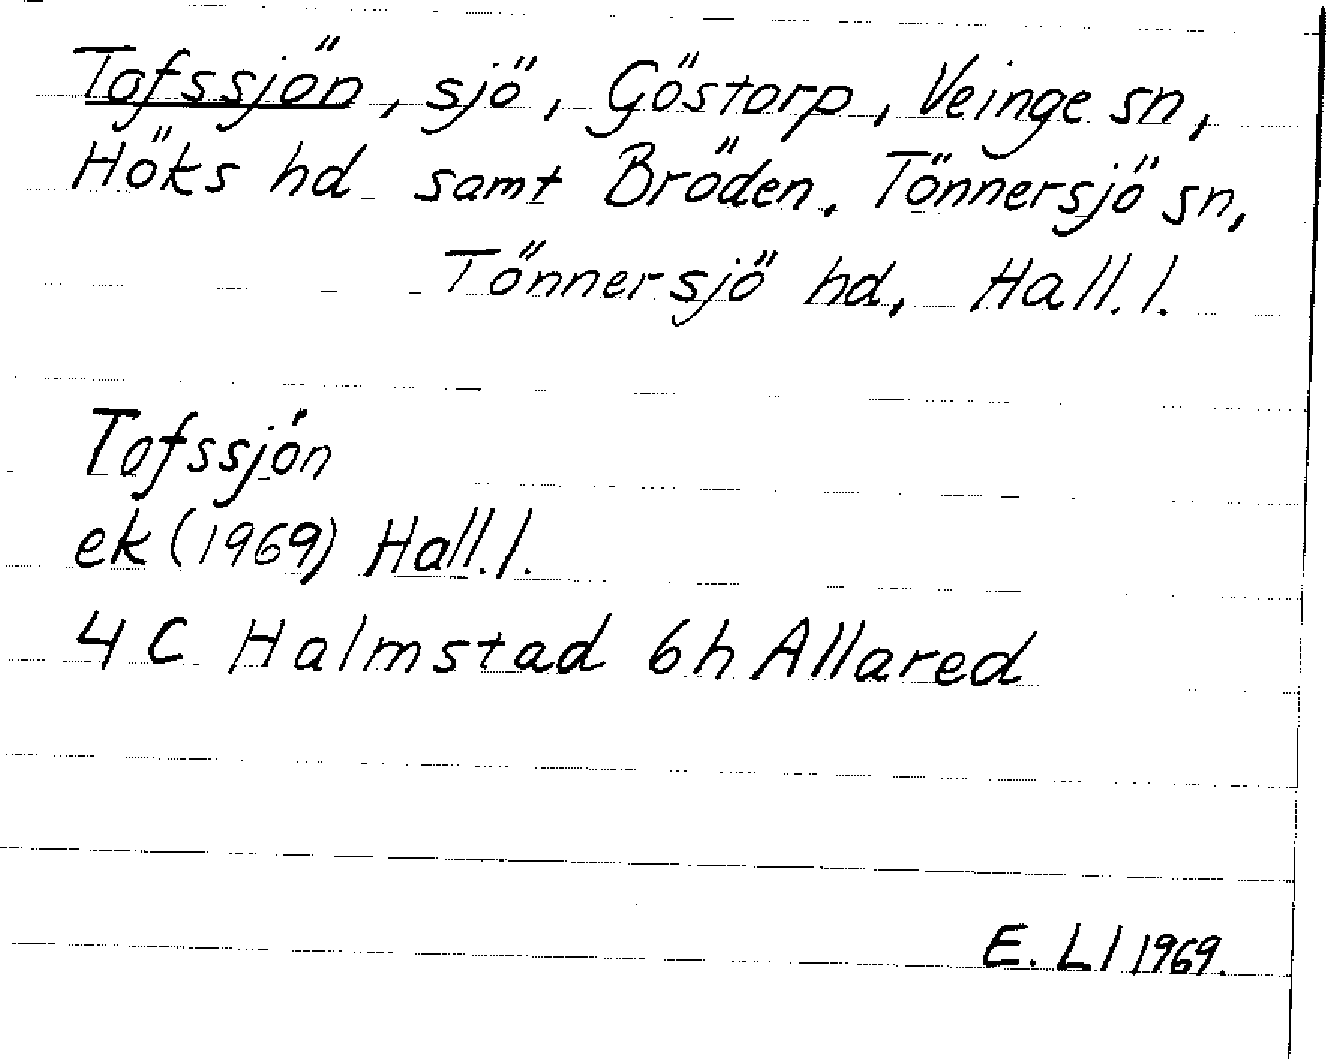 Tofssjön, sjö, Göstorp, Veinge sn,
Höks hd samt Bröden, Tönnersjö sn,
Tönnersjö hd, Hall.l.
Tofssjön
ek (1969) Hall.l.
4 C Halmstad 6h Allared
E. Ll 1969.